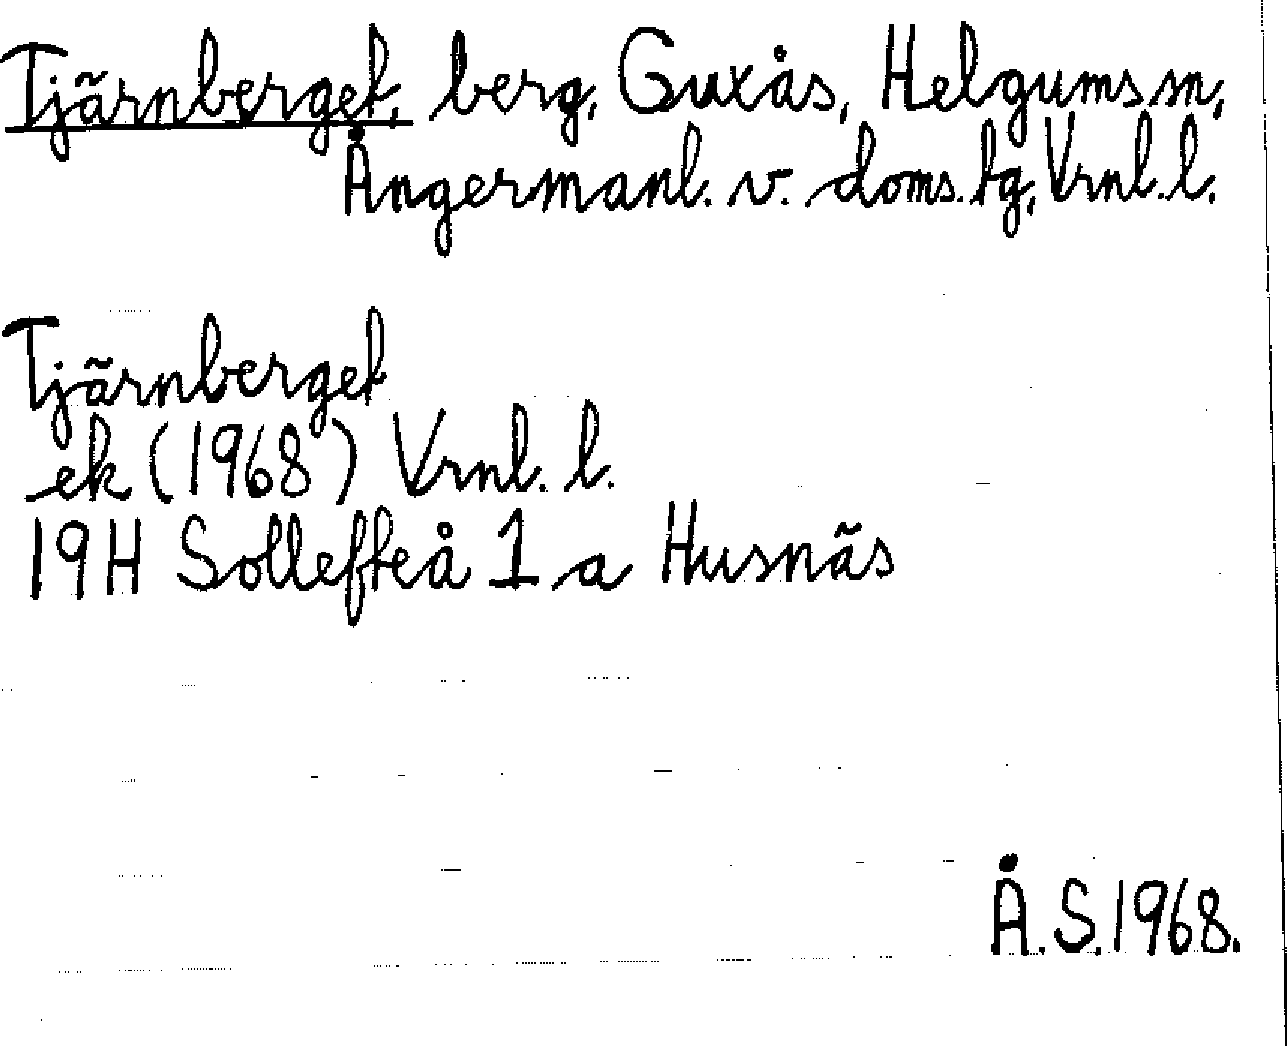 Tjärnberget, berg, Guxås, Helgums sn,
Ångermanl. v. doms. tg, Vrnl. l.
Tjärnberget
ek (1968) Vrnl. l.
19H Sollefteå 1 a Husnäs
Å.S.1968.